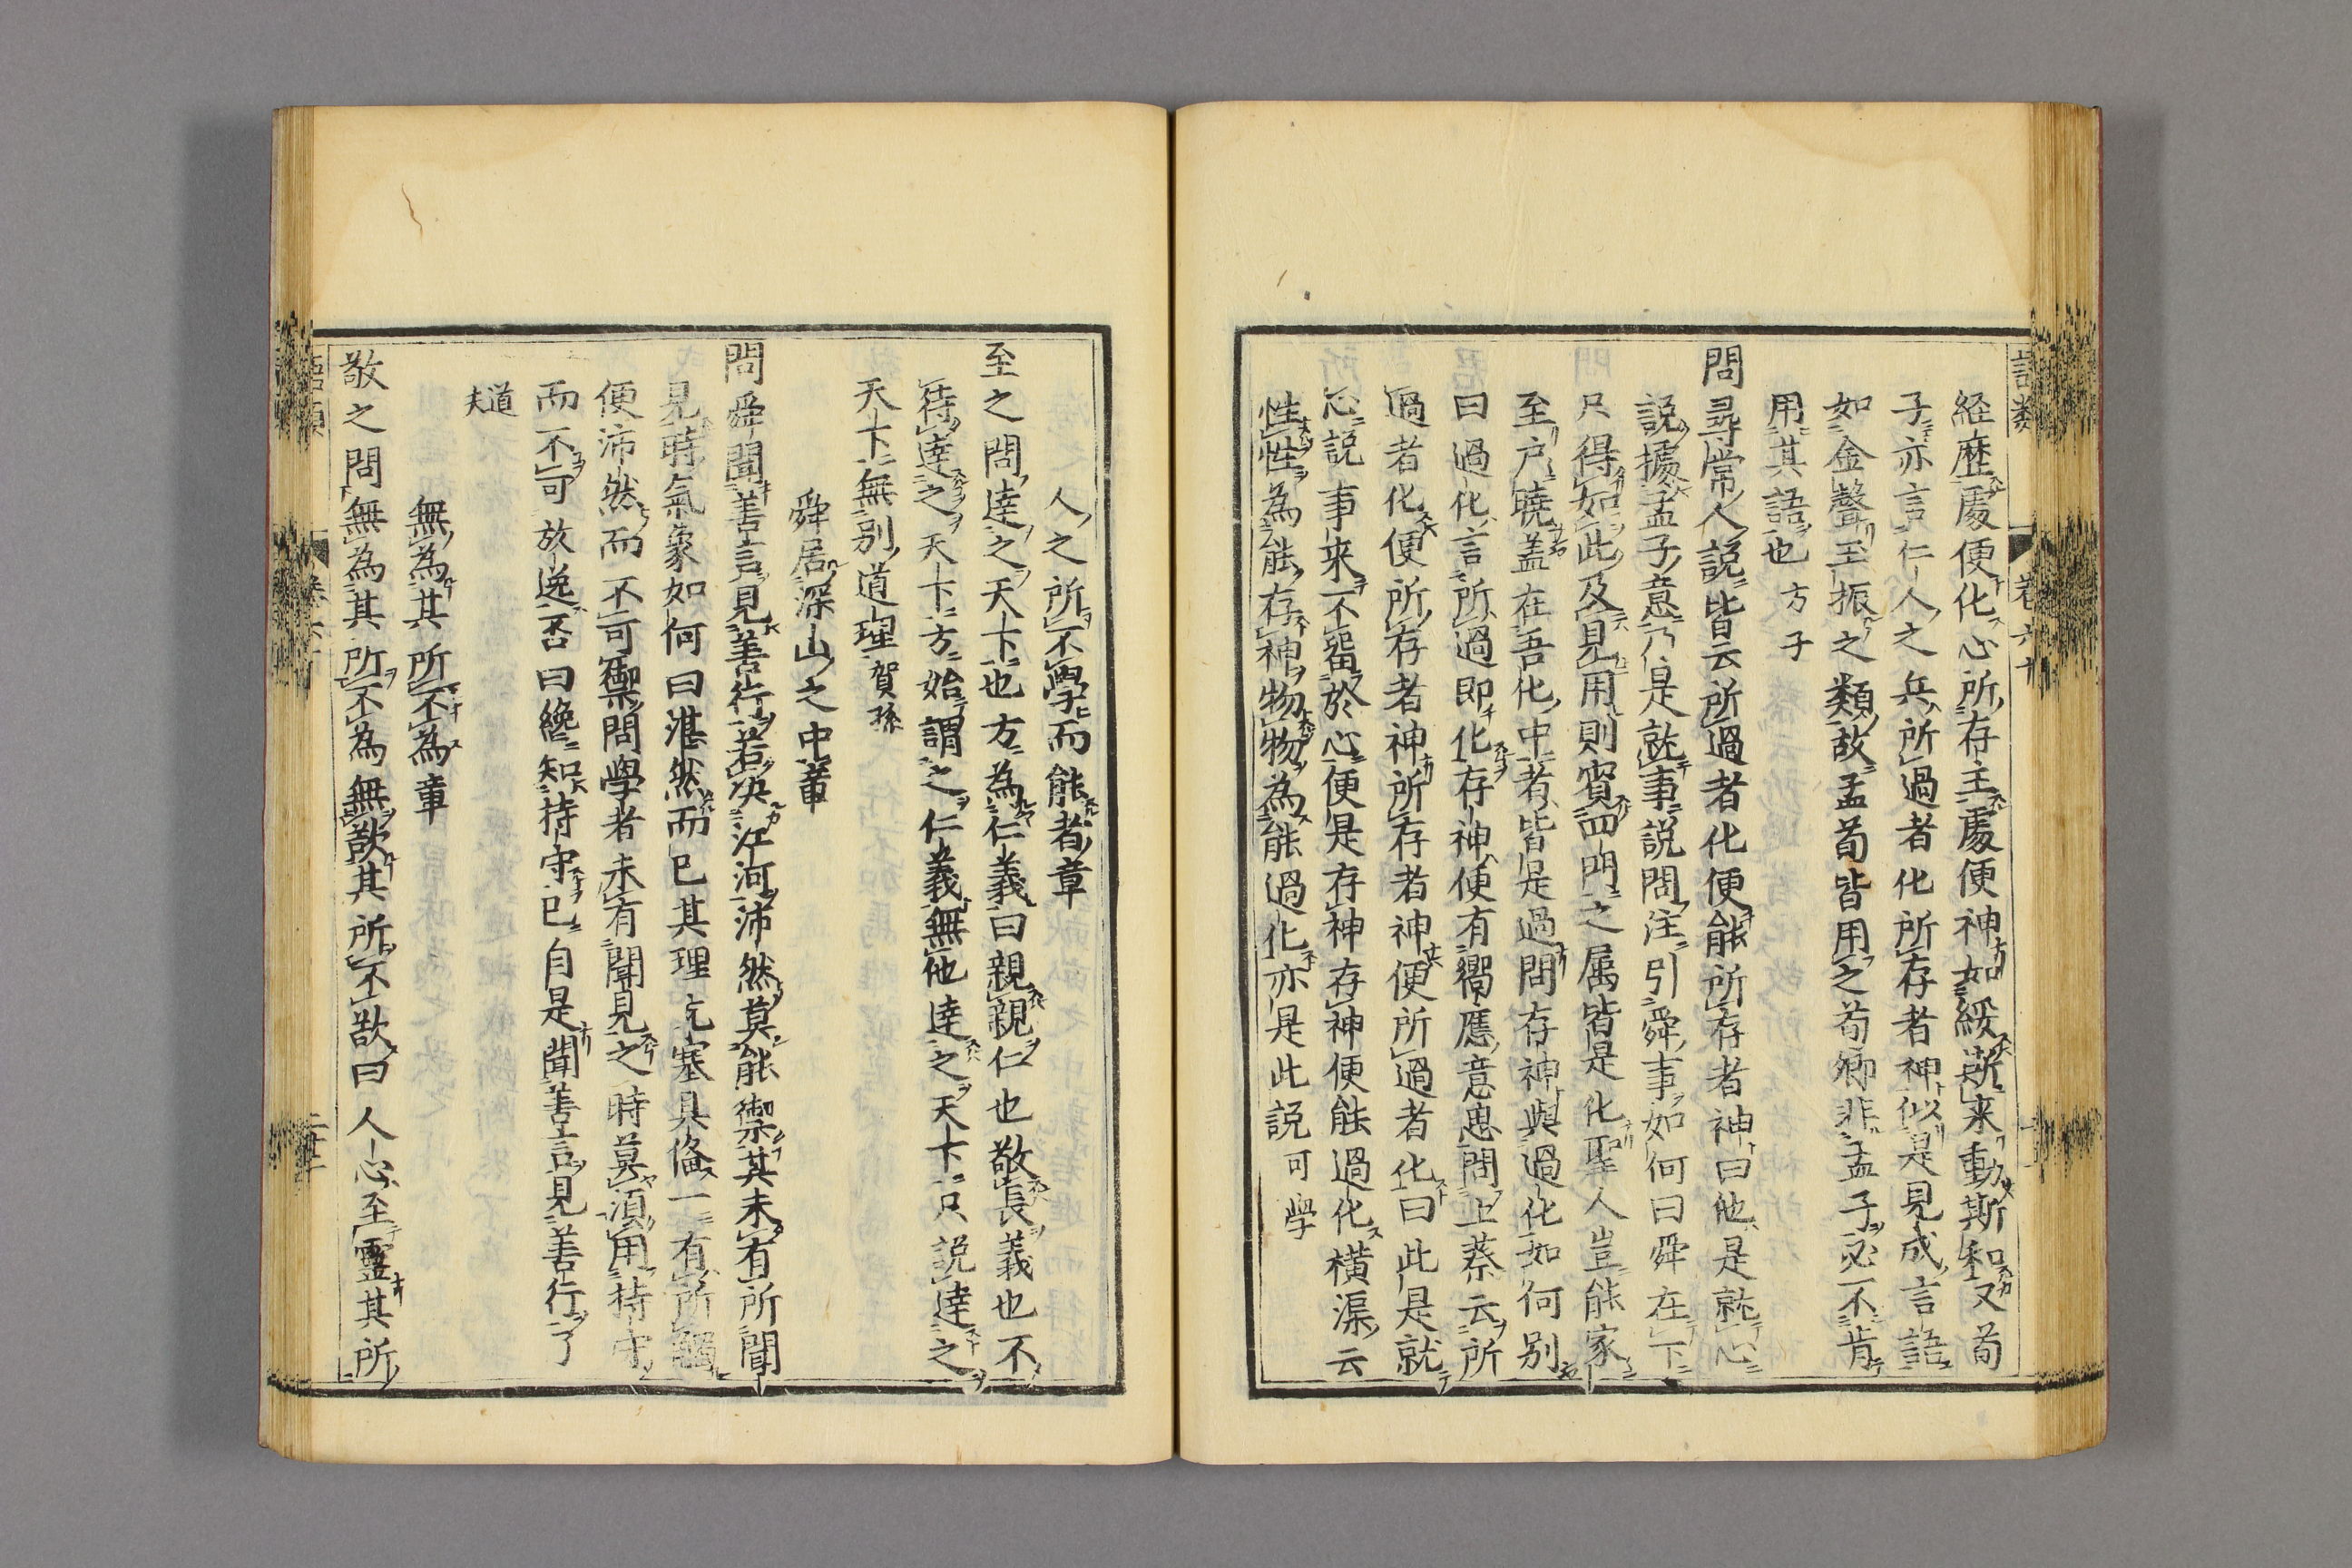 経歴處便化心所存主處便神如綏斯来動斯和又荀
子亦言仁人之兵所過者化所存者神似是見成言語
如金聲玉振之類故孟荀皆用之荀卿非孟子必不肯
用其語也 方子
問尋常人說皆云所過者化便能所存者神曰他是就心
說據孟子意乃是就事說問注引舜事如何曰舜在下
只得如此及見用則賓四門之属皆是化聖人豈能家
至户曉蓋在吾化中者皆是過問存神與過化如何别
曰過化言所過即化存神便有響應意思問上蔡云所
過者化便所存者神所存者神便所過者化曰此是就
心說事来不畱於心便是存神存神便能過化横渠云
性性為能存神物物為能過化亦是此說 可學
人之所不學而能者章
至之問達之天下也方為仁義曰親親仁也敬長義也不
待達之天下方始謂之仁義無他達之天下只說達之
天下無别道理 賀孫
舜居深山之中章
問舜聞善言見善行若決江河沛然莫能禦其未有所聞
見時氣象如何曰湛然而已其理充塞具俻一有所觸
便沛然而不可禦問學者未有聞見之時莫須用持守
而不可放逸否曰纔知持守已自是聞善言見善行了
道夫
無為其所不為章
敬之問無為其所不為無欲其所不欲曰人心至靈其所